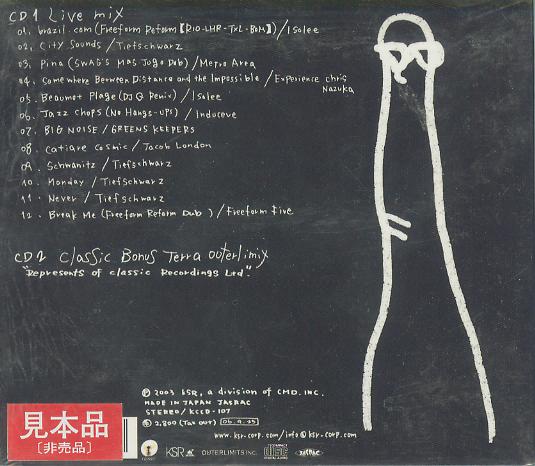 CD1 Live mix
01. brazil.com (Freeform Reform【RIO-LHR-TXL-BOM】) / Isolee
02. City Sounds / Tiefschwarz
03. Pina (SWAG'S MAS JUGO Dub) / Metro Area
04. Somewhere Between Distance and the Impossible / Experience chris
Nazuka
05. Beaumot Plage (DJ Q Remix) / Isolee
06. Jazz Chops (No Hangs-ups) / Induceve
07. BIG NOISE / GREENS KEEPERS
08. Catiare Cosmic / Jacob London
09. Schwanitz / Tiefschwarz
10. Monday / Tiefschwarz
11. Never / Tiefschwarz
12. Break Me (Freeform Reform Dub) / Freeform Five
CD2 classic Bonus Terra outerlimix
"Represents of classic Recordings Ltd"
Ⓟ 2003 KSR, a division of CMD.INC.
MADE IN JAPAN JASRAC
STEREO / KCCD-107
2,800 (Tax out)
www.ksr-corp.com / info@ksr-corp.com
見本品
〔非売品〕
KSR OUTERLIMITS INC. COMPACT disc DIGITAL AUDIO JASRAC